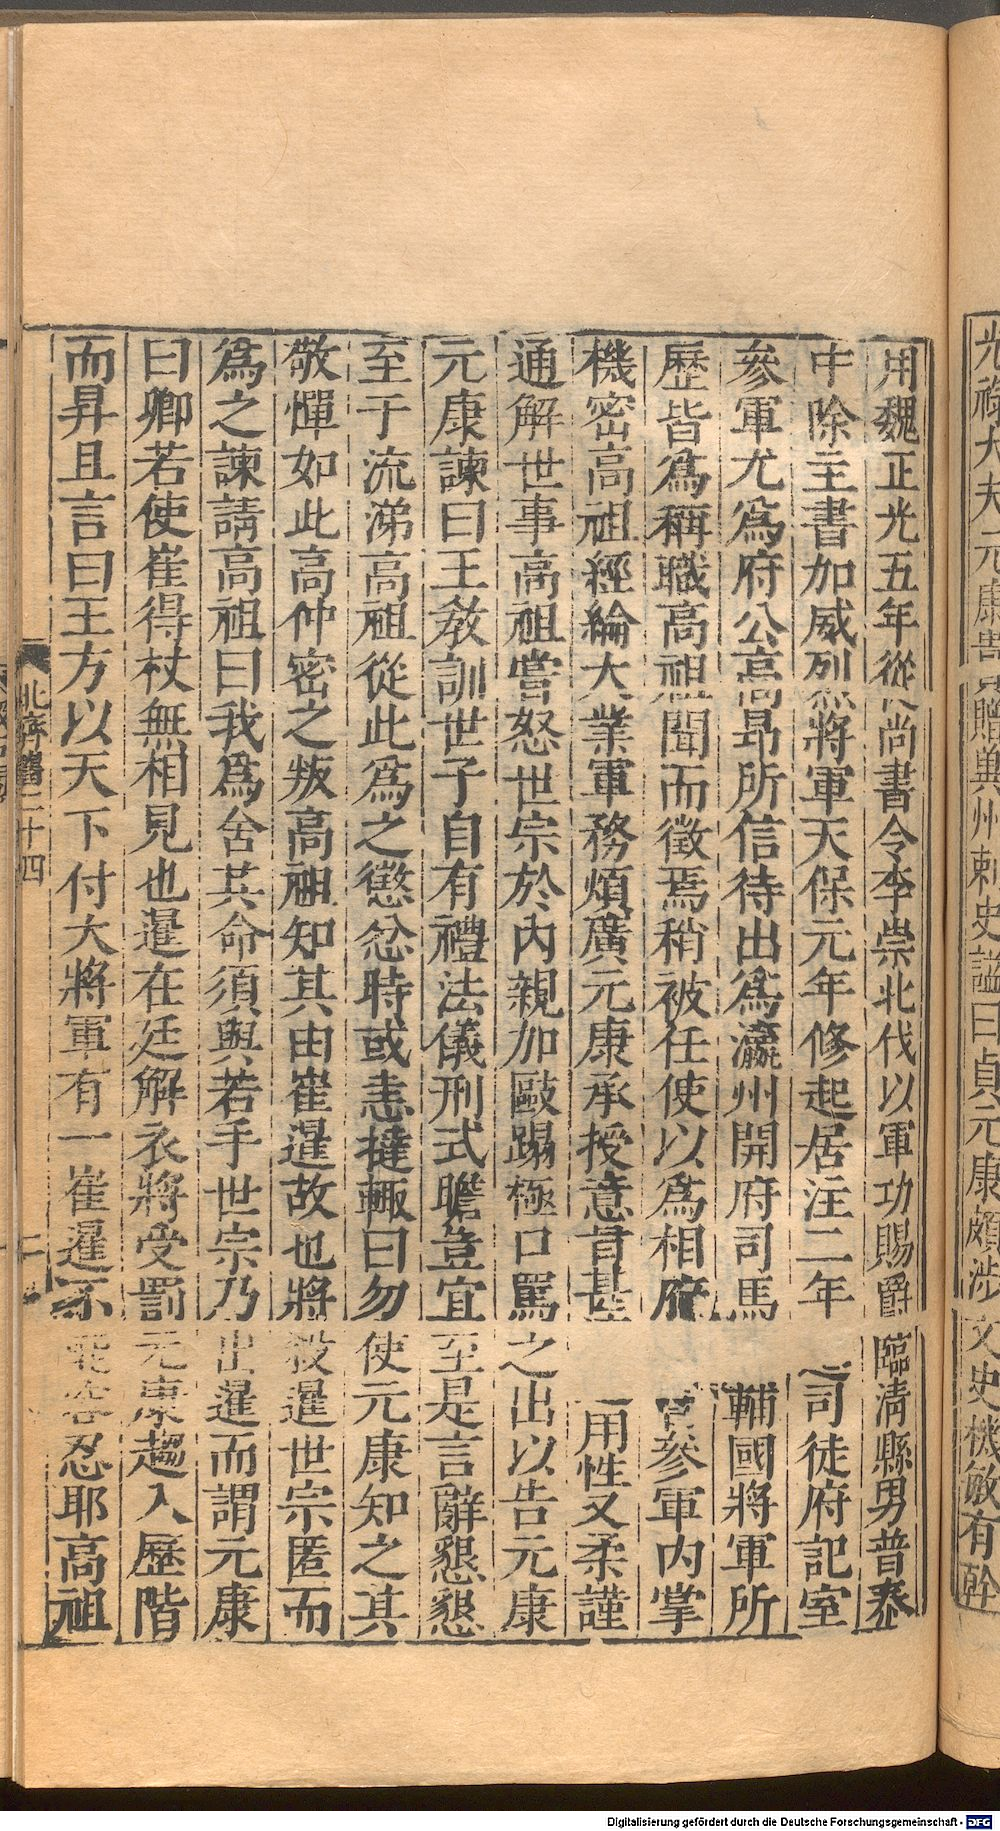 光祿大夫元康贈冀州刺史諡曰貞元康頗涉文史機敏有幹
用魏正光五年從尚書令李崇北伐以軍功賜爵臨清縣男普泰
中除主書加威烈將軍天保元年修起居注二年司徒府記室
參軍尤爲府公高昂所信待出爲瀛州開府司馬輔國將軍所
歷皆爲稱職高祖聞而徵焉稍被任使以爲相府官參軍內掌
機密高祖經綸大業軍務煩廣元康承授意旨甚用性又柔謹
通解世事高祖嘗怒世宗於內親加毆蹋極口罵之出以告元康
元康諫曰王敎訓世子自有禮法儀刑式瞻豈宜至是言辭懇懇
至于流涕高祖從此爲之懲忿時或恚撻輙曰勿使元康知之其
敬憚如此高仲密之叛高祖知其由崔暹故也將殺暹世宗匿而
爲之諫請高祖曰我爲舍其命須與若手世宗乃出暹而謂元康
曰卿若使崔得杖無相見也暹在廷解衣將受罰元康趨入歷階
而昇且言曰王方以天下付大將軍有一崔暹不能容忍耶高祖
北齊書二十四
二
Digitalisierung gefördert durch die Deutsche Forschungsgemeinschaft - DFG